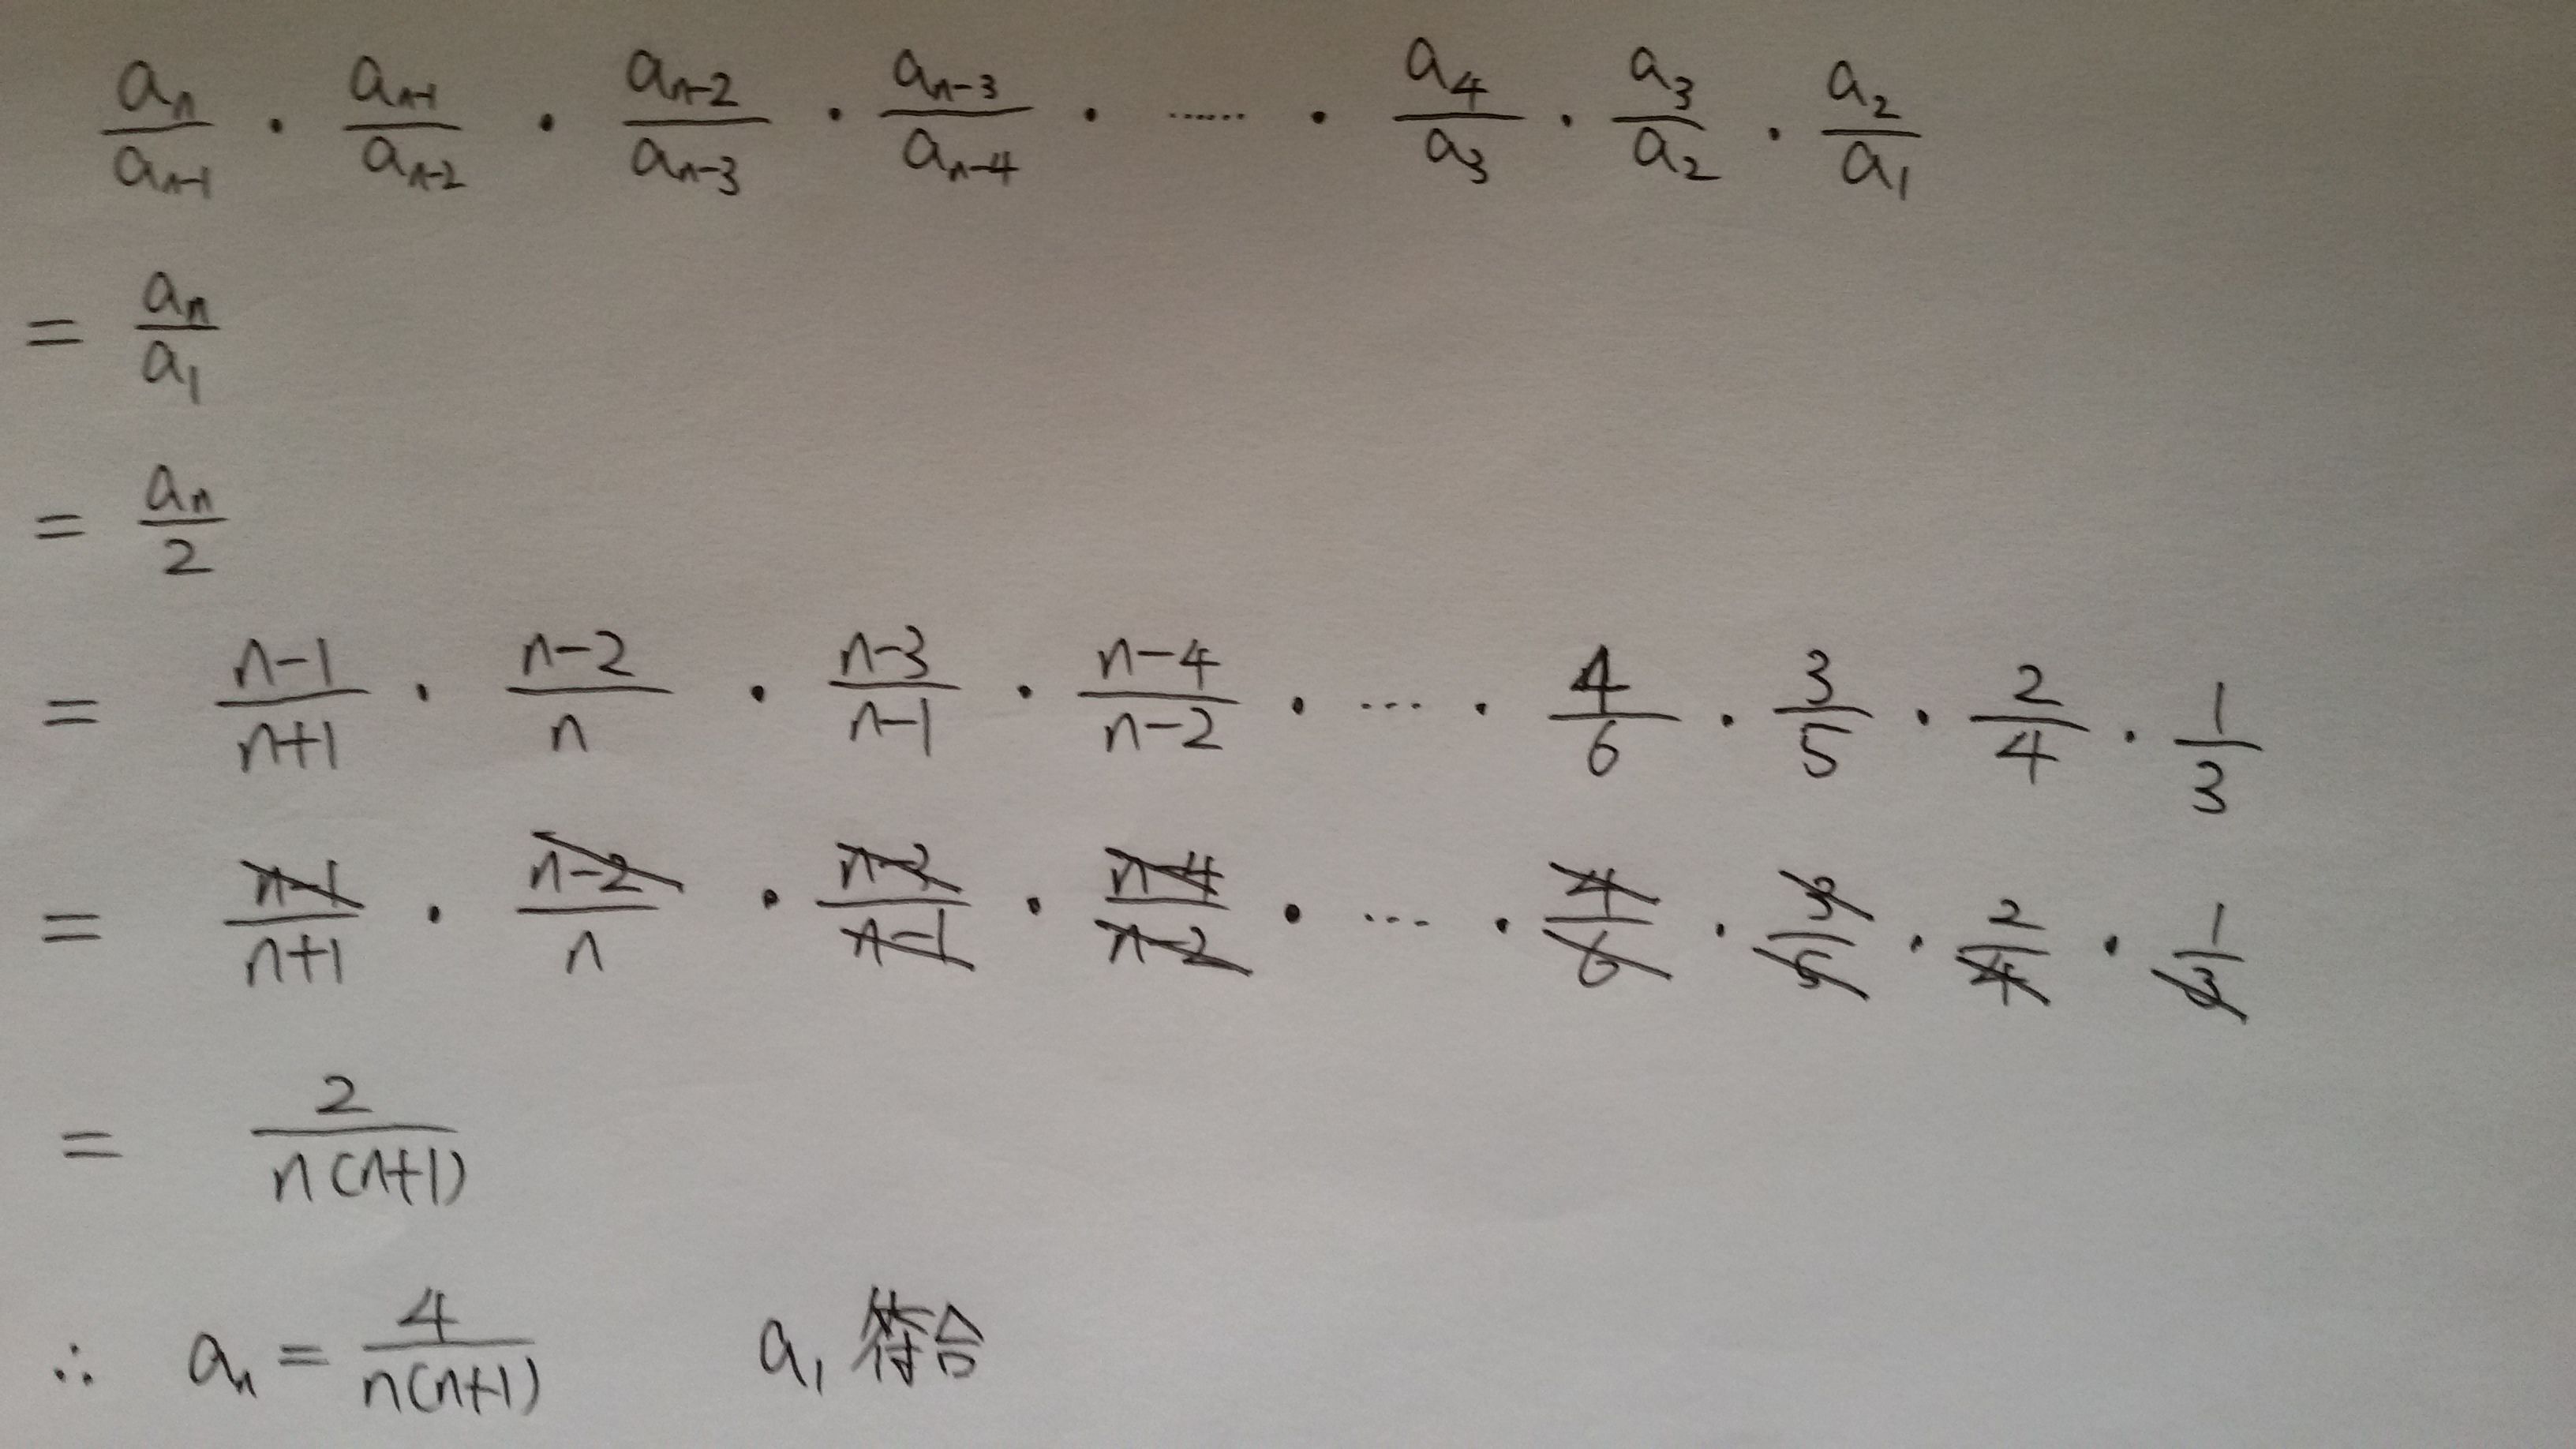 $\frac{a_n}{a_{n-1}} \cdot \frac{a_{n-1}}{a_{n-2}} \cdot \frac{a_{n-2}}{a_{n-3}} \cdot \frac{a_{n-3}}{a_{n-4}} \cdot \cdots\cdots \cdot \frac{a_4}{a_3} \cdot \frac{a_3}{a_2} \cdot \frac{a_2}{a_1}$
$= \frac{a_n}{a_1}$
$= \frac{a_n}{2}$
$= \frac{n-1}{n+1} \cdot \frac{n-2}{n} \cdot \frac{n-3}{n-1} \cdot \frac{n-4}{n-2} \cdot \cdots \cdot \frac{4}{6} \cdot \frac{3}{5} \cdot \frac{2}{4} \cdot \frac{1}{3}$
$= \frac{\cancel{n-1}}{n+1} \cdot \frac{\cancel{n-2}}{n} \cdot \frac{\cancel{n-3}}{\cancel{n-1}} \cdot \frac{\cancel{n-4}}{\cancel{n-2}} \cdot \cdots \cdot \frac{\cancel{4}}{\cancel{6}} \cdot \frac{\cancel{3}}{\cancel{5}} \cdot \frac{2}{\cancel{4}} \cdot \frac{1}{\cancel{3}}$
$= \frac{2}{n(n+1)}$
$\therefore a_n = \frac{4}{n(n+1)}$ $a_1$ 符合